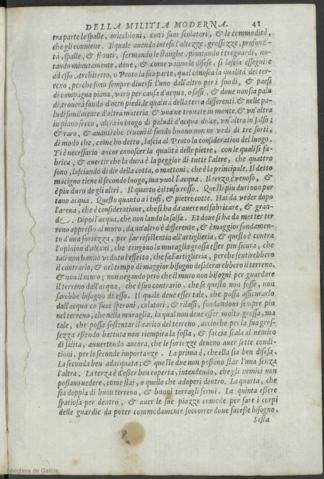 DELLA MILITIA MODERNA. 41
tra parte le spalle, orecchioni, tutti suoi scolatori, & le commodità,
che gli conviene. Il quale anendo inteso l'altezze, grossezze, profundi-
tà, spalle, & fronti, fermando le stanghe, piantando i traguardi, no-
tando minutamente, dove, & come vanno le difese, si lascia essegui-
ad esso Architetto, o Proto la sua parte, qual conosca la qualità del ter-
reno, perche sono sempre diversi l'uno dall'altro per i fondi, & paesi
di campagna piana, varij per causa d'acqua, o sassi, & dove non sia palu
di, trouerà fundi d'otto piedi, le qualità della terra differenti. & nelle pa-
ludi similmente d'altra materia. & variate trouate in monte, & un'altra
in piano secco, altri in luogo di paludi d'acqua dolce, un'altra in salsa;
& raro, & avanti che truoui il fundo buono non ne vedi di tre sorti,
di modo che, come ho detto, lascia al Proto la consideration del luogo.
Ti è necessario ancor conoscer la qualità delle pietre, con le quali si fa-
brica, & avertir che la dura è la peggior di tutte l'altre, che quattro
sono, lasciando di dir della cotta, o mattoni, che è la principale. Il detto
macigno tiene il secondo luogo, ma vuol l'acqua. Il terzo è &
è più duro de gli altri. Il quarto è il tufo rosso. Questi più duri non por-
tano acqua. Questo quanto a i tufi, & pietre cotte. Hai da veder dapo
l'arena, che è consideratione, che si ha da avere nel fabricare, & gran-
de. Dipoi l'acqua, che non landa la fossa. Et dove si ha da metter ter
reno appresso al muro, da un'altro è differente, & è maggior fundamen-
to d'una fortezza, per far resistentia all'artigliaria, & questo è contra
l'opinion d'alcuni, che tengono la muraglia grossa esser più sicura, che
tali non hanno veduto l'effetto, che fa l'artigliaria, perche sentirebbero
il contrario, & nel tempo di maggior bisogno desiderarebbero il terreno,
& non il muro; non negando però che il muro non bisogni per guardare
il terreno dall'acqua, che è suo contrario, che se questo non fosse, non
sarebbe bisogno di esso. Il quale deve esser tale, che possa assicurarlo
dall'acqua co suoi speroni, colatori, & rilassi, fondandoui sempre più
nel terreno, che nella muraglia, la qual non deve esser molto grossa, ma
tale, che possa sostentar il carico del terreno, accioche per la sua gros-
sezza essendo battuta non riempia la fossa, & faccia scala al nemico
di salita, avvertendo ancora, che le fortezze deveno aver sette condi-
tioni, per le seconde importanze. La prima è, che ella sia ben difesa.
La seconda ben adacquata; & queste due non possono star l'una senza
l'altra. La terza è d'esser ben coperta, intendendo, che gli nemici non
possano vedere, come stai, o quello che adoperi dentro. La quarta, che
sia doppia di buon terreno, & buoni terragli fermi. La quinta essere
spatiosa per dentro, & aver le sue piazze comode per fare i corpi
delle guardie da poter comodamente soccorrer dove facesse bisogno.
Sesta
Biblioteca de Galicia